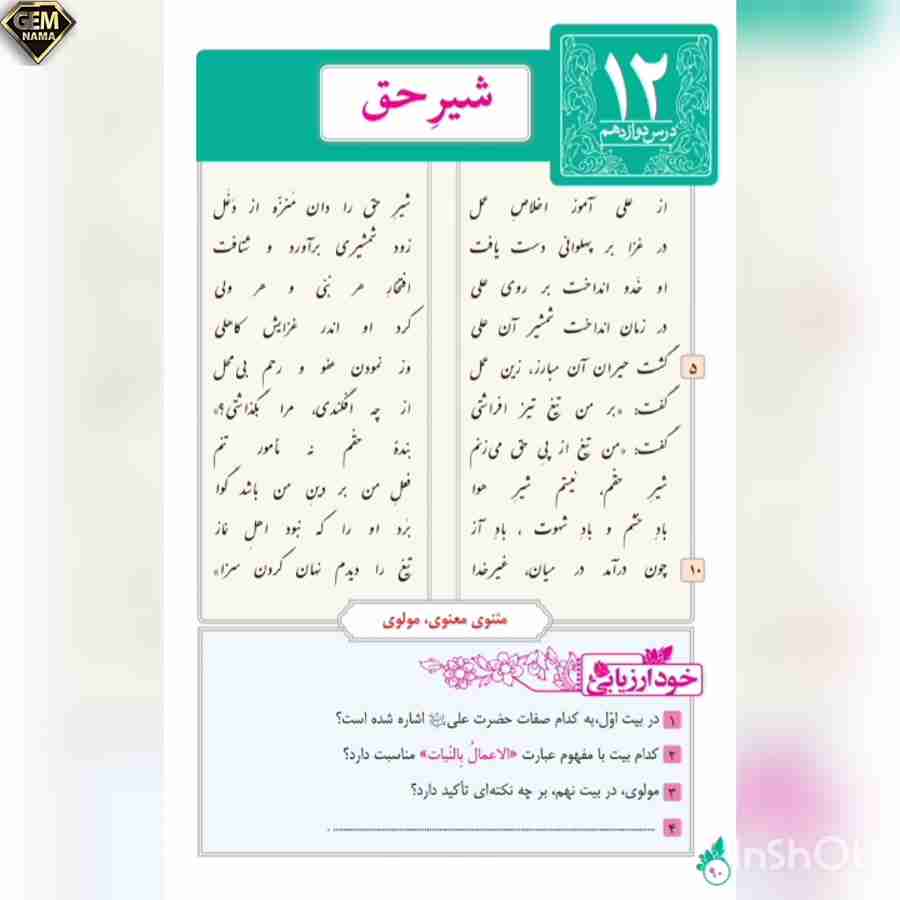 GEM
NAMA
۱۲
درس دوازدهم
شیرِ حق
از علی آموز اخلاصِ عمل شیرِ حق را دان مُنزّه از دَغَل
در غزا بر پهلوانی دست یافت زود شمشیری برآورد و شتافت
او خَدو انداخت بر روی علی افتخارِ هر نبّی و هر ولی
در زمان انداخت شمشیر آن علی کرد او اندر غزایش کاهلی
۵ گشت حیران آن مبارز، زین عمل وز نمودن عفو و رحم بی‌محل
گفت: «بر من تیغ تیز افراشتی از چه افگندی، مرا بگذاشتی؟»
گفت: «من تیغ از پیِ حق می‌زنم بندهٔ حقّم نه مأمور تنم
شیرِ حقّم، نیستم شیرِ هوا فعلِ من بر دینِ من باشد گوا
بادِ خشم و بادِ شهوت ، بادِ آز بُرد او را که نبود اهلِ نماز
۱۰ چون درآمد در میان، غیرِخدا تیغ را دیدم نهان کردن سزا»
مثنوی معنوی، مولوی
خودارزیابی
۱ در بیت اوّل،به کدام صفات حضرت علی اشاره شده است؟
۲ کدام بیت با مفهوم عبارت «الاعمالُ بِالنّیات» مناسبت دارد؟
۳ مولوی، در بیت نهم، بر چه نکته‌ای تأکید دارد؟
۴ .
۹۰
InShOt